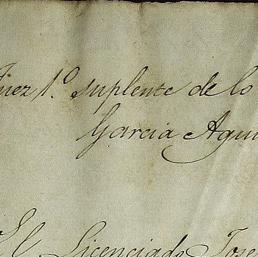 Juez 1.º suplente de lo
Garcia Agui
El Licenciado Jose